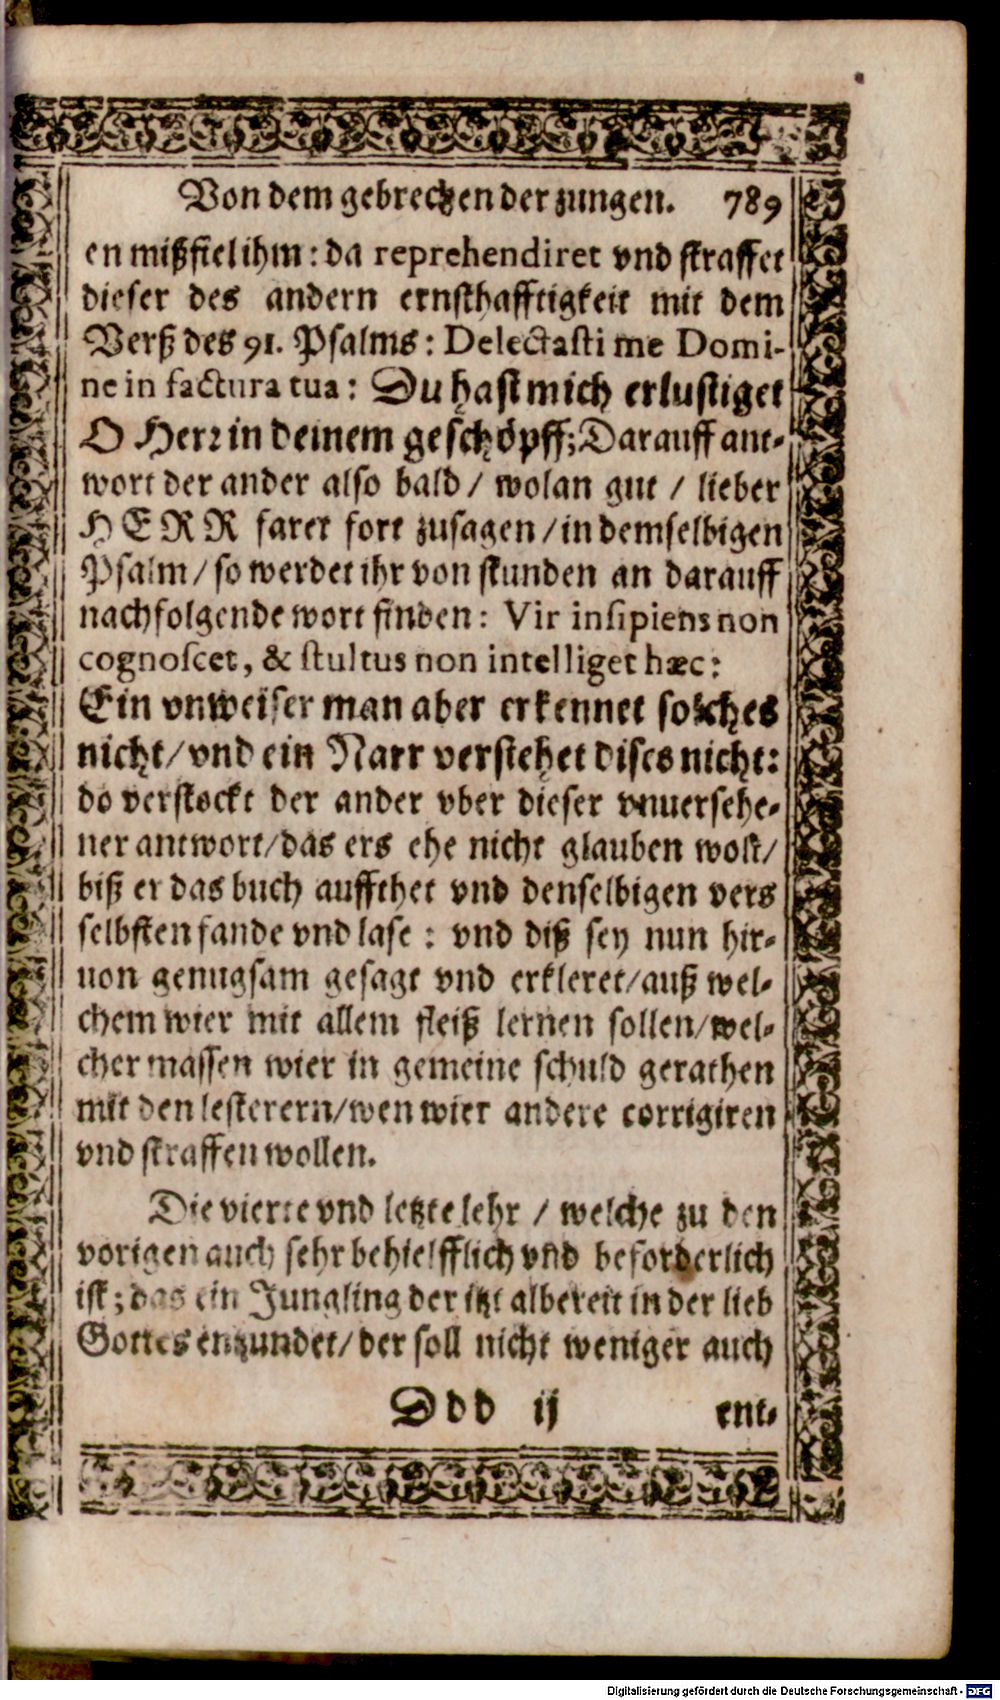 Von dem gebrechen der zungen. 789
en mißfiel ihm: da reprehendiret vnd straffet
dieser des andern ernsthafftigkeit mit dem
Verß des 91. Psalms: Delectasti me Domi-
ne in factura tua: Du hast mich erlustiget
O Herr in deinem geschöpff; Darauff ant-
wort der ander also bald / wolan gut / lieber
HERR faret fort zusagen / in demselbigen
Psalm / so werdet ihr von stunden an darauff
nachfolgende wort finden: Vir insipiens non
cognoscet, & stultus non intelliget hæc:
Ein vnweiser man aber erkennet solches
nicht / vnd ein Narr verstehet dises nicht:
do verstockt der ander vber dieser vnuersehe-
ner antwort / das ers ehe nicht glauben wolt /
biß er das buch auffthet vnd denselbigen vers
selbsten fande vnd lase: vnd diß sey nun hir-
uon genugsam gesagt vnd erkleret / auß wel-
chem wier mit allem fleiß lernen sollen / wel-
cher massen wier in gemeine schuld gerathen
mit den lesterern / wen wier andere corrigiren
vnd straffen wollen.
Die vierte vnd letzte lehr / welche zu den
vorigen auch sehr behielfflich vnd beforderlich
ist; das ein Jungling der itzt albereit in der lieb
Gottes enzundet / der soll nicht weniger auch
Ddd ij ent-
Digitalisierung gefördert durch die Deutsche Forschungsgemeinschaft - DFG